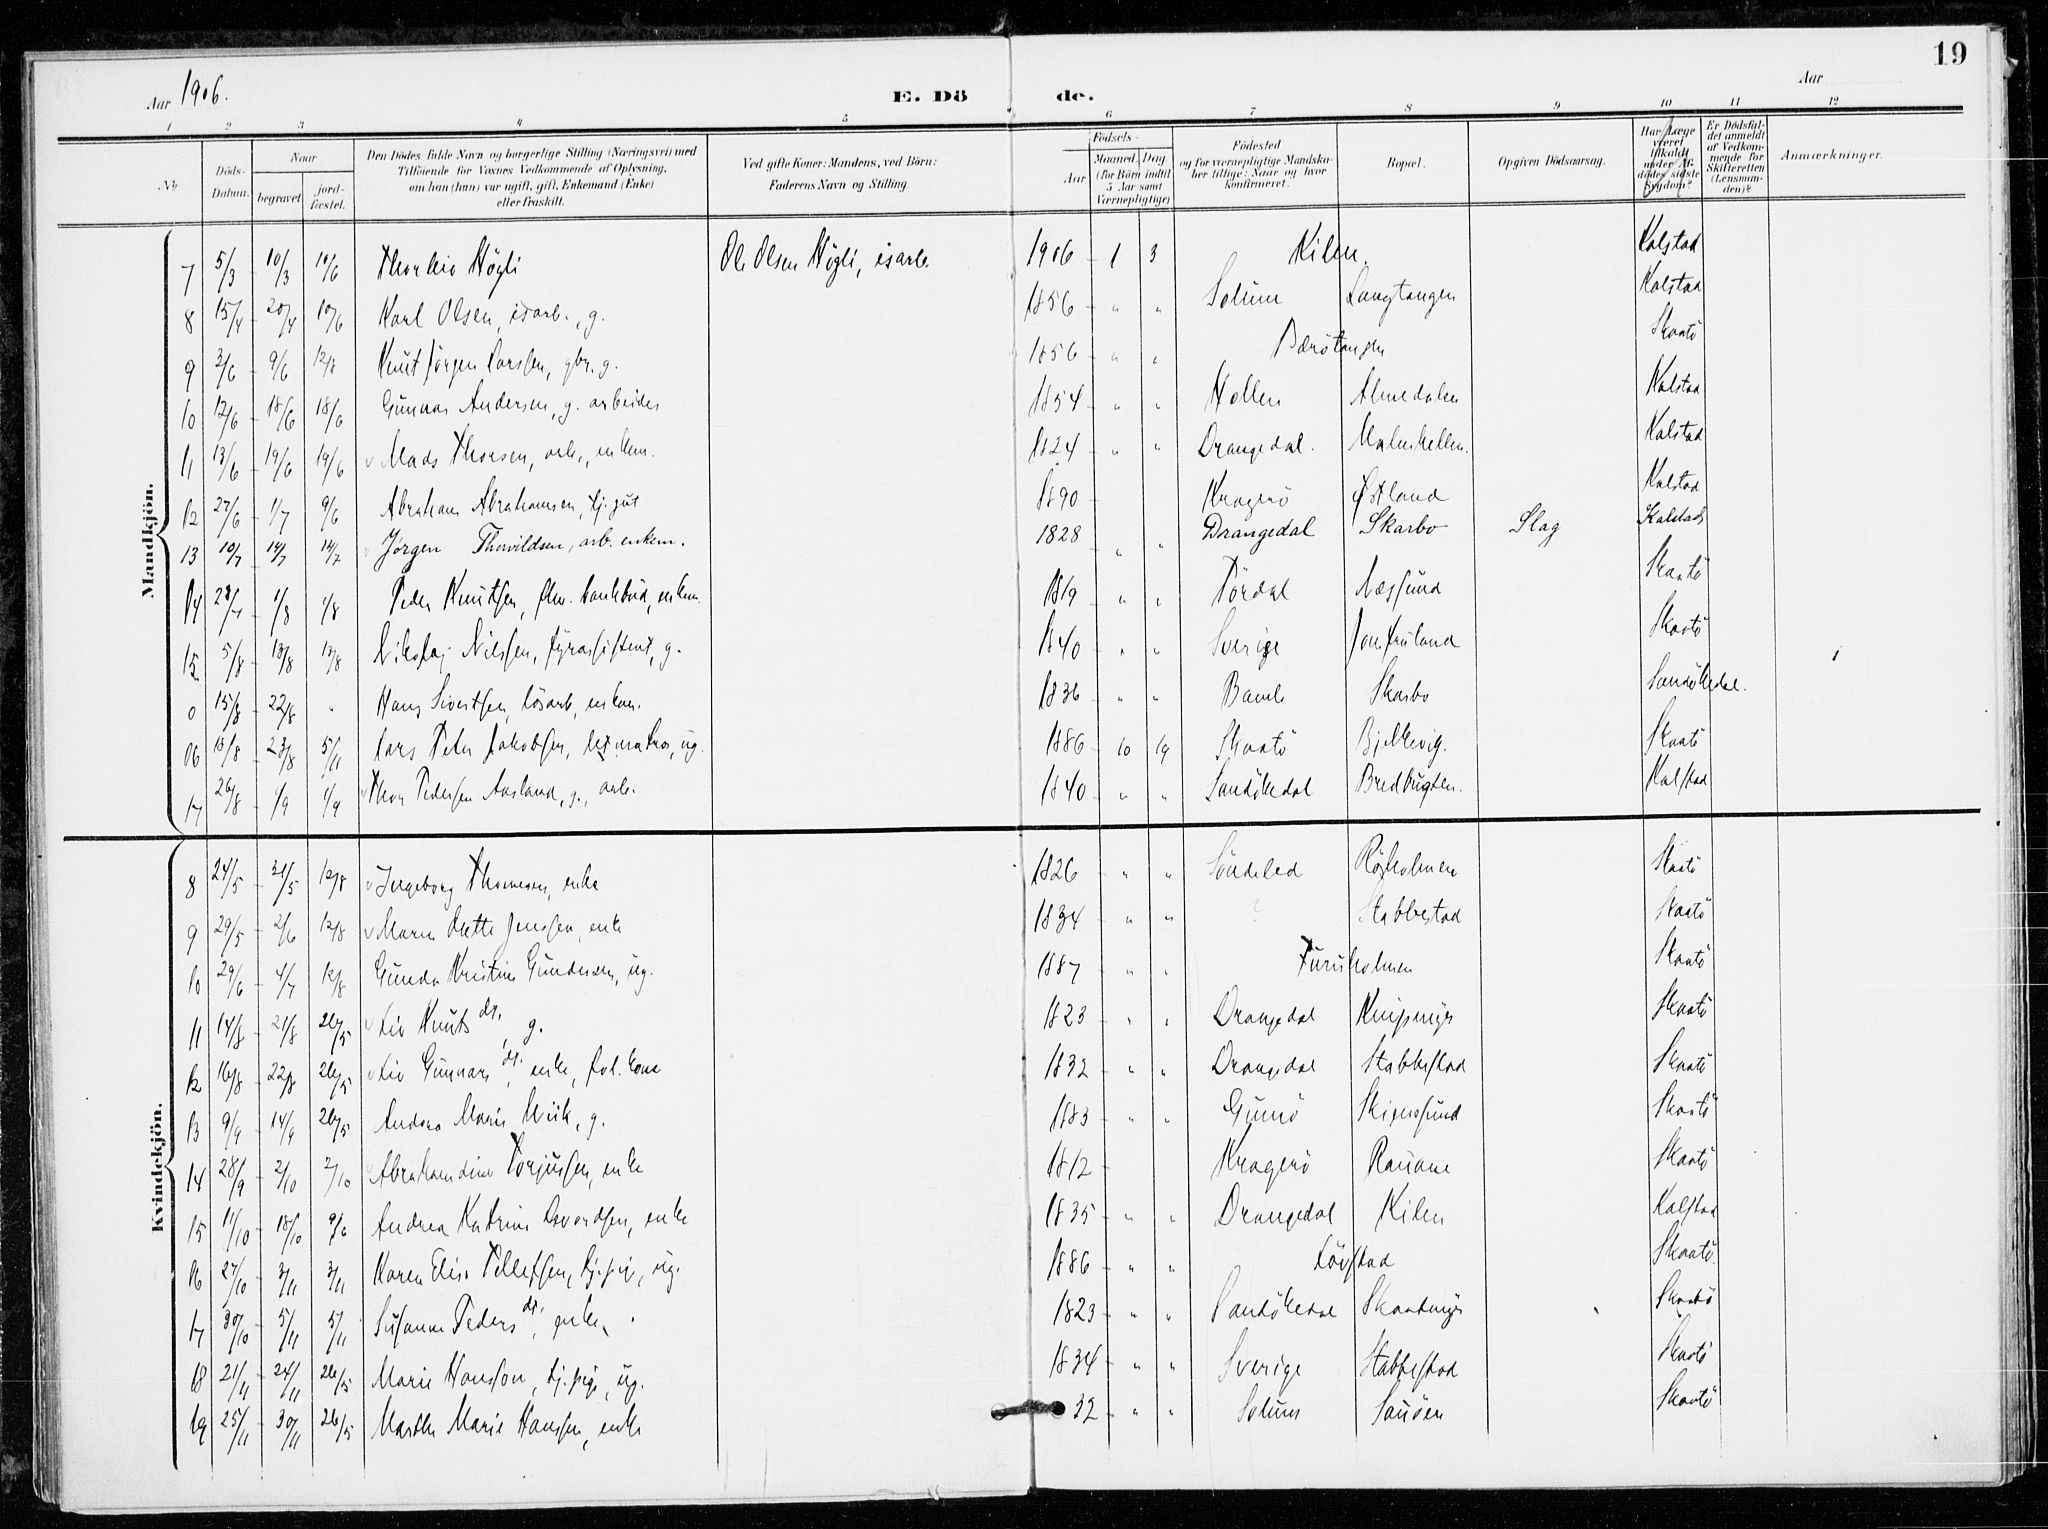 19
Aar 1906.
E. Dö de.
Aar
1 2 3 4 5 6 7 8 9 10 11 12
No
Döds-Datum.
Naar
begravet
jord-fæstet.
Den Dödes fulde Navn og borgerlige Stilling (Næringsvei) med Tilföiende for Voxnes Vedkommende af Oplysning, om han (hun) var ugift, gift, Enkemand (Enke) eller fraskilt.
Ved gifte Koner: Mandens, ved Börn: Faderens Navn og Stilling.
Födsels-
Aar
Maaned. Dag
(for Börn indtil 5 Aar samt Værnepligtige)
Födested og for værnepligtige Mandskaber tillige: Naar og hvor konfirmeret.
Bopæl.
Opgiven Dödsaarsag.
Har Læge været tilkaldt under Afdödes sidste Sygdom?
Er Dödsfaldet anmeldt af Vedkommende for Skifteretten (Lensmanden)?
Anmærkninger.
Mandkjön.
7 5/3 10/3 10/6 Thorleiv Högli Ole Olsen Högli, isarb. 1906 1 3 Kilen. Kalstad
8 15/4 20/4 10/6 Karl Olsen, isarb., g. 1856 " " Solum Langtangen Kalstad
9 3/6 9/6 12/8 Knut Jörgen Larssen, gbr. g. 1856 " " Bærötangen Skaatö
10 12/6 18/6 18/6 Gunnar Andersen, g. arbeider 1854 " " Hollen Almedalen Kalstad
11 13/6 19/6 19/6 Mads Thorsen, arb., enkem. 1824 " " Drangedal. Kalstad
12 27/6 1/7 9/6 Abraham Abrahamsen, tj. gut 1890 Kragerö Østland Kalstad
13 10/7 14/7 14/7 Jörgen Thovildsen, arb. enkem. 1828 " " Drangedal Skarbo Slag Kalstad
14 28/7 1/8 1/8 Peder Knutsen, enkem. 1819 " " Tördal Næssund Skaatö
15 5/8 13/8 13/8 Nikolaj Nilssen, fyrassistent, g. 1840 " " Sverige Jomfruland Skaatö
0 15/8 22/8 " Hans Sivertsen, lösarb., enkem. 1836 " " Bamle Skarbo Sandökedal.
16 18/8 23/8 5/11 Lars Peter Jakobsen, matros, ug. 1886 10 19 Skaatö Bjelkevig. Skaatö
17 26/8 1/9 1/9 Thor Pedersen Aasland, g., arb. 1840 " " Sandökedal Bredbugten. Kalstad
Kvindekjön.
8 24/5 31/5 12/8 Ingeborg Thomesen, enke 1826 " " Söndeled Röiholmen Skaatö
9 29/5 2/6 12/8 Maren Mette Jenssen, enke 1834 " " ? Stabbestad Skaatö
10 29/6 4/7 12/8 Gunda Kristine Gundersen, ug. 1887 " " Furuholmen Skaatö
11 14/8 21/8 26/5 Liv Knuts dr., g. 1823 " " Drangedal Skaatö
12 16/8 22/8 26/5 Liv Gunnars dr., enke, fol. kone 1832 " " Drangedal Stabbestad Skaatö
13 9/9 14/9 26/5 Andrea Marie Wiik, g. 1883 " " Gumö Skipssund Skaatö
14 28/9 2/10 2/10 Abrahamdine Torjussen, enke 1812 Kragerö Rauane Skaatö
15 11/10 18/10 9/6 Andrea Katrine enke 1835 " " Drangedal Kilen Kalstad
16 27/10 3/11 3/11 Karen Elise Tellefsen, tj.pige, ug. 1886 " " Lövstad Skaatö.
17 30/10 5/11 5/11 Susanne Peders dr., enke, 1823 " " Sandökedal Skaatö
18 21/11 24/11 26/5 Marie Hansson, tj.pige, ug. 1834 " " Sverige Stabbestad Skaatö
19 25/11 30/11 26/5 Marthe Marie Hanssen, enke 32 " " Solum Sauöen Skaatö